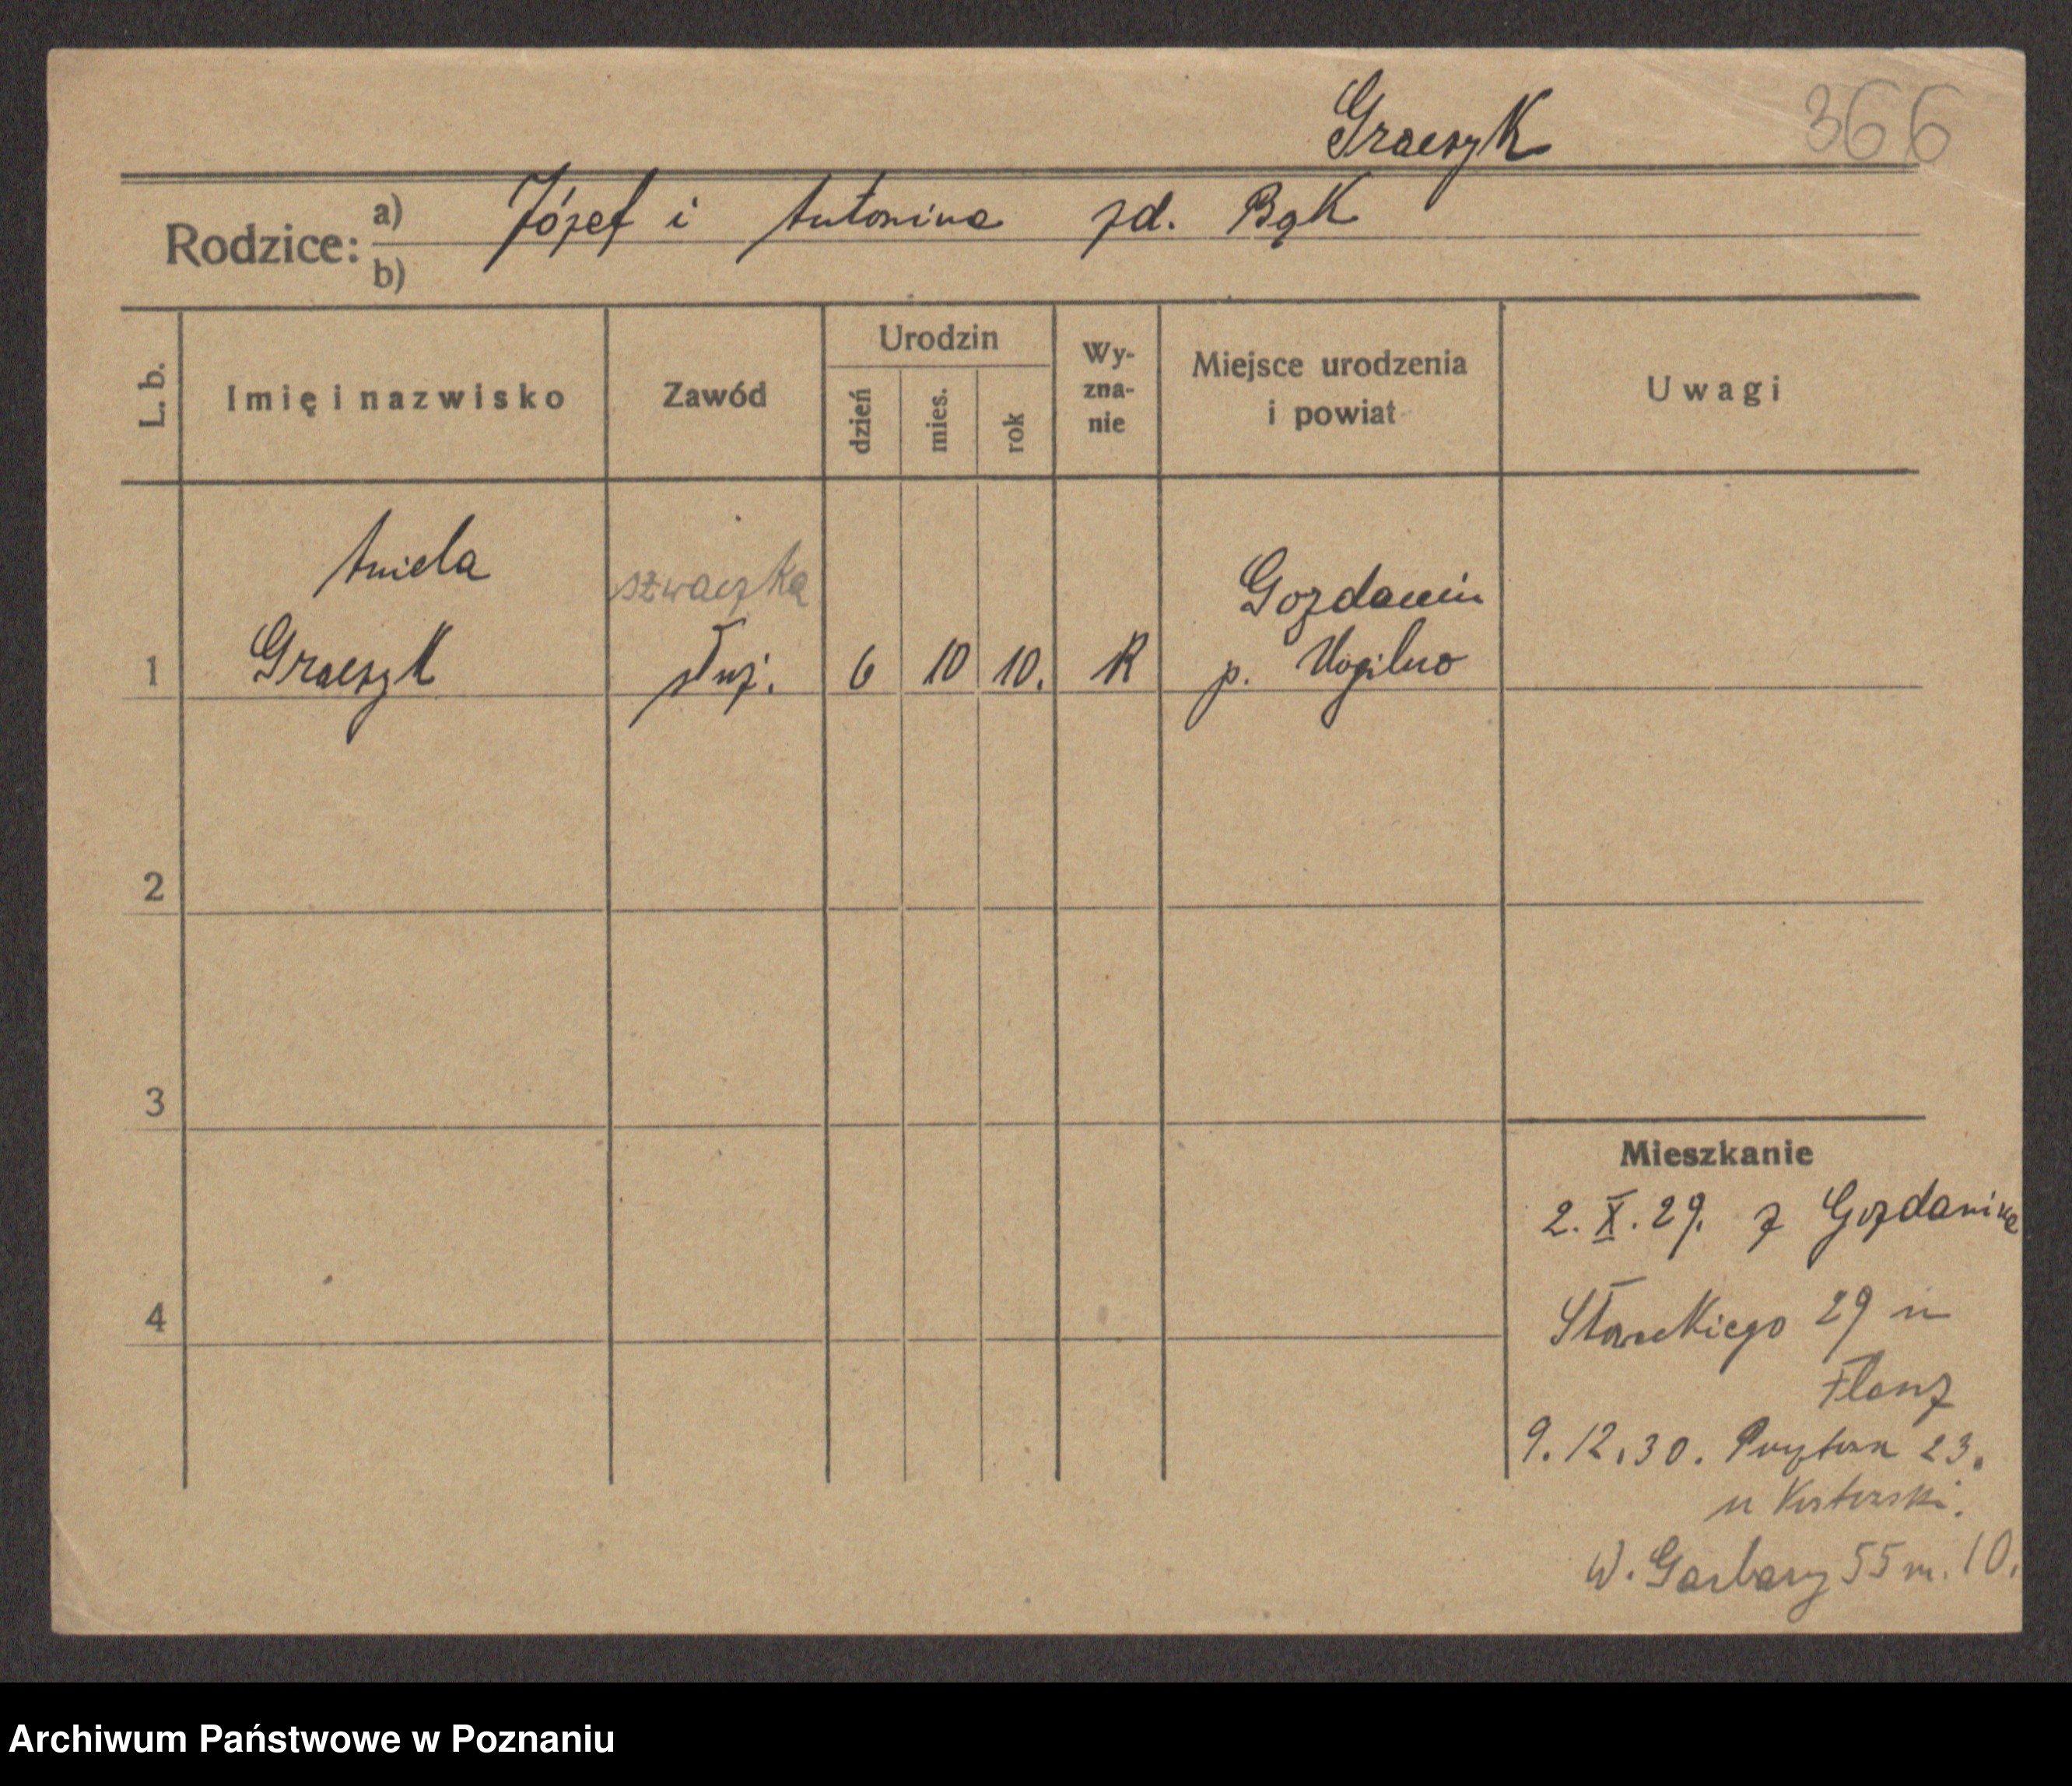 Graczyk 366
Rodzice: a) Józef i Antonina zd. Bąk
b)
L. b. Imię i nazwisko Zawód Urodzin dzień mies. rok Wy-zna-nie Miejsce urodzenia i powiat Uwagi
Aniela szwaczka Gozdanin
1 Graczyk służ. 6 10 10. R p. Mogilno
2
3
Mieszkanie
2. X. 29. z Gozdanina
4
Słowackiego 29 u
Flanz
9. 12. 30. 23.
u
W. Garbary 55 m. 10.
Archiwum Państwowe w Poznaniu